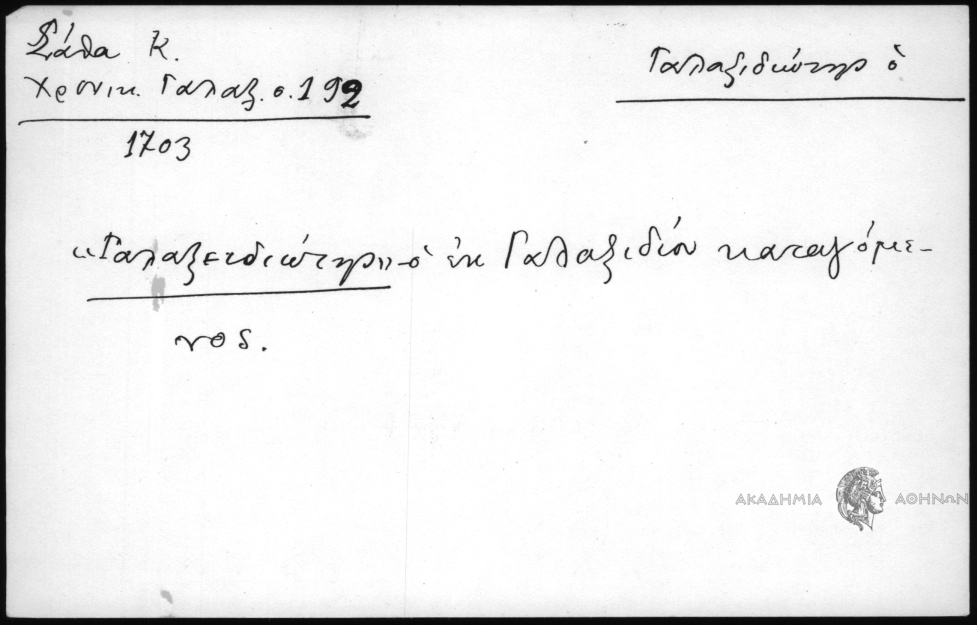 Σάθα Κ.
Χρονικ. Γαλαξ. σ. 192
1703
Γαλαξιδιώτης ὁ
«Γαλαξειδιώτης» - ὁ ἐκ Γαλαξιδίου καταγόμε-
νος.
ΑΚΑΔΗΜΙΑ ΑΘΗΝΩΝ